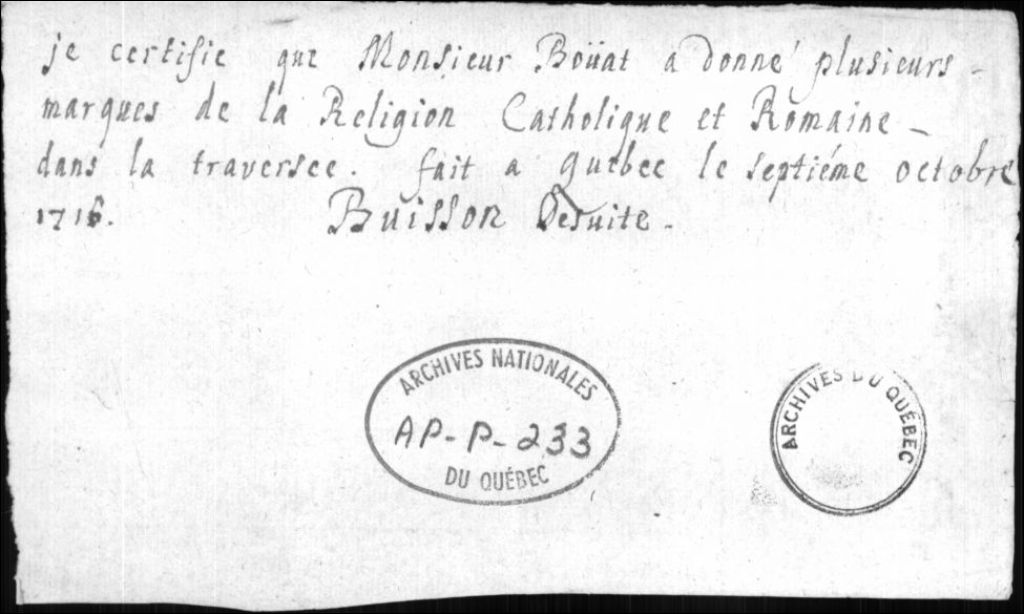 je certifie que Monsieur Boüat a donné plusieurs -
marques de la Religion Catholique et Romaine -
dans la traversee. fait a Quebec le septiéme octobre
1716. Buisson Jesuite.
ARCHIVES NATIONALES
AP-P-233
DU QUÉBEC
ARCHIVES DU QUÉBEC